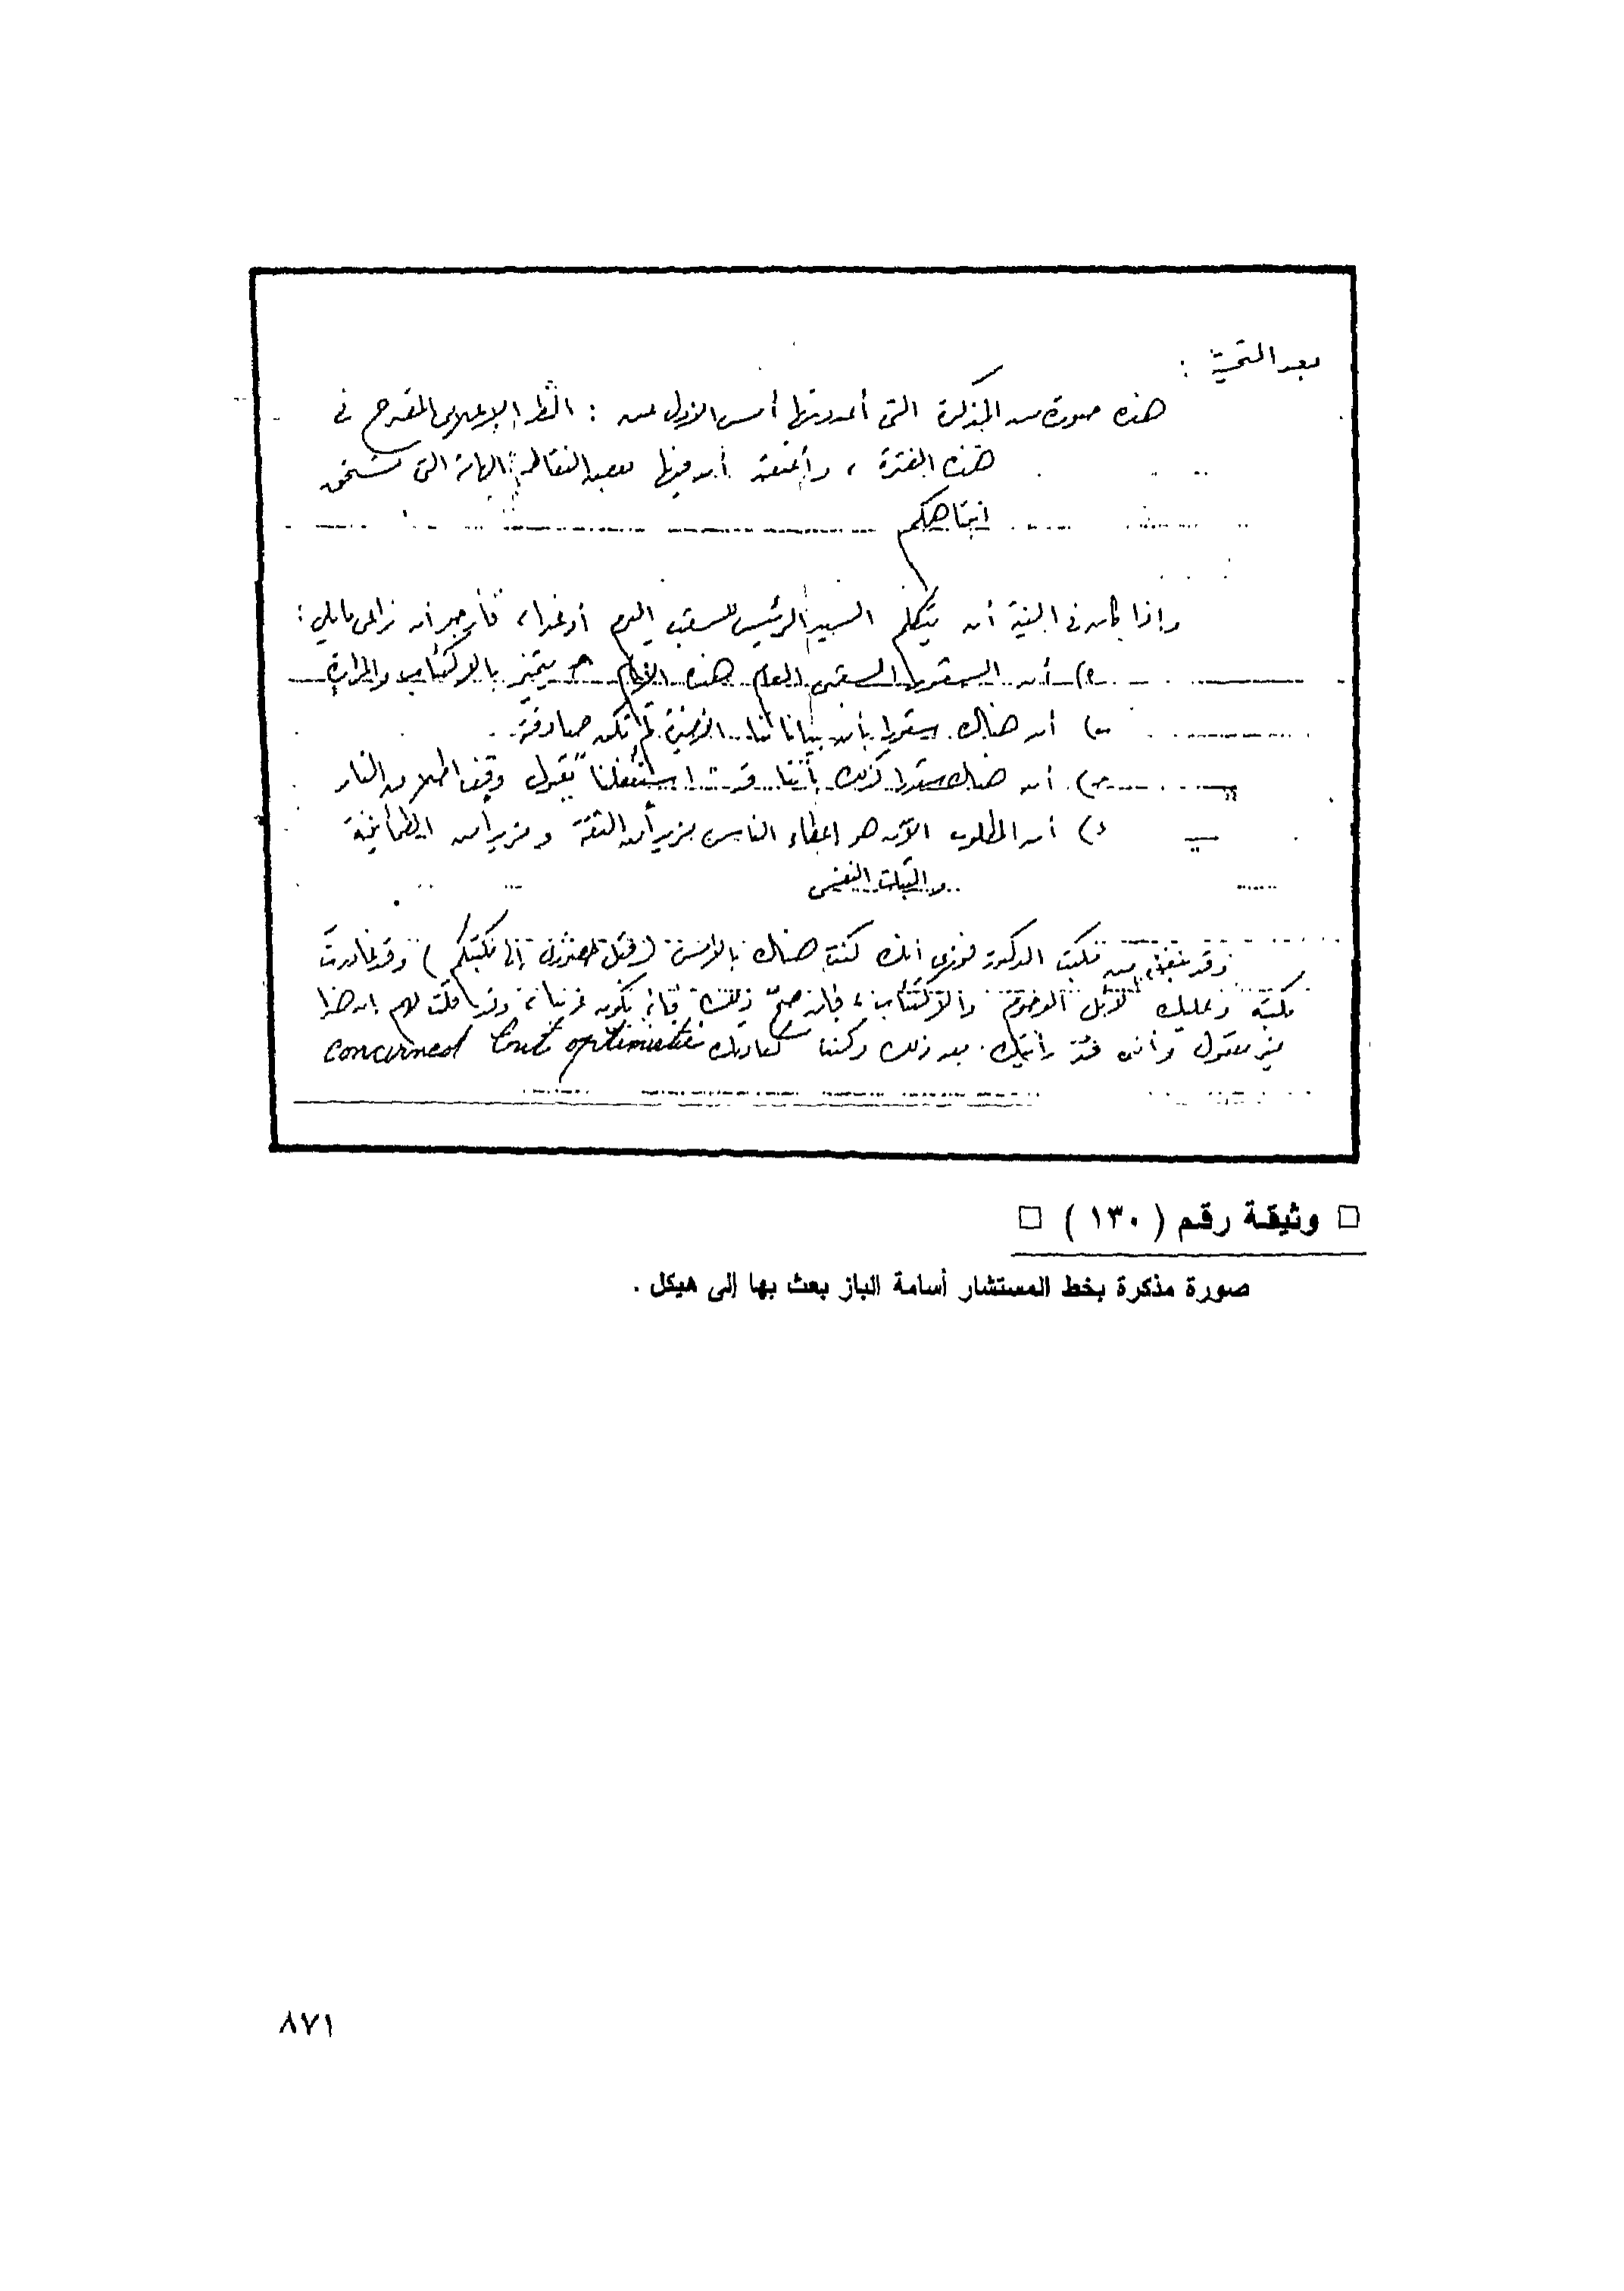 بعد التحية :
هذه صورة من المذكرة التى أعددتها أمس الأول عن : الخط الإعلامى المقترح فى
هذه الفترة ، وأعتقد أن فيها بعض النقاط الهامة التى تستحق
انتباهكم
وإذا كان فى النية أن يتكلم السيد الرئيس للشعب اليوم أو غدا ، فأرجو أن نراعى مايلى :
أ) أن الشعور الشعبى العام هذه الأيام يتميز بالاكتئاب والمرارة
ب) أن هناك شعورا بأن بياناتنا الأخيرة لم تكن صادقة .
ج) أن هناك شعورا كذلك بأننا قد استغفلنا بقبول وقف اطلاق النار
د) أن المطلوب الآن هو إعطاء الناس مزيدا من الثقة ومزيدا من الطمأنينة
والثبات النفسى
وقد من مكتب الدكتور فوزى أنك كنت هناك بالأمس ( قبل حضورى إلى مكتبكم ) وقد غادرت
مكتبه وعليك الوجوم والاكتئاب ، فإن صح ذلك فإنه يكون غريبا ، وقد قلت لهم ان هذا
غير معقول وأننى قد رأيتك بعد ذلك وكنت كعادتك concerned but optimistic
□ وثيقة رقم ( ١٣٠ ) □
صورة مذكرة بخط المستشار أسامة الباز بعث بها إلى هيكل .
٨٧١